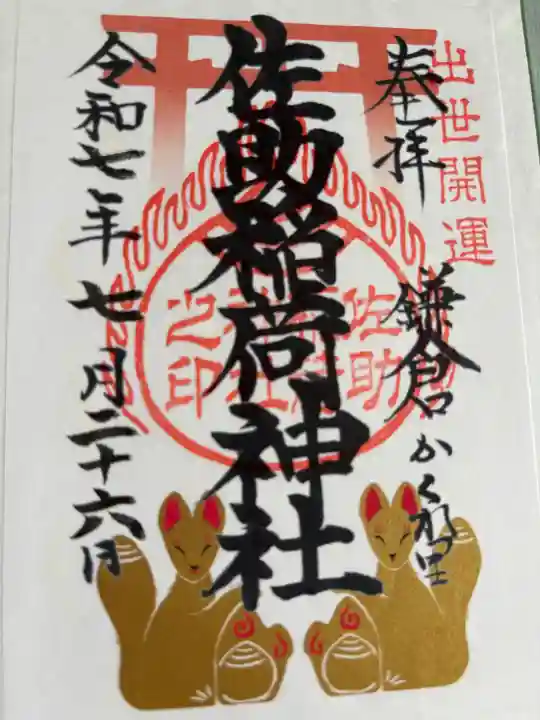 出世開運
奉拝
鎌倉かくれ里
佐助稲荷神社
佐助稲荷神社之印
令和七年七月二十六日